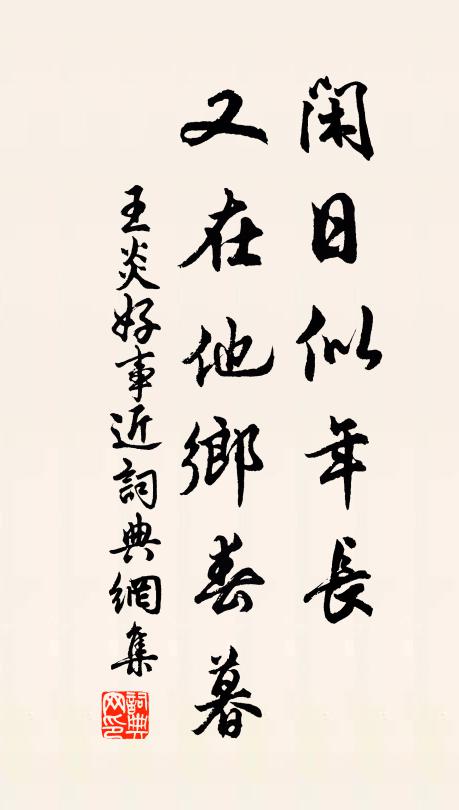 閑日似年長
又在他鄉春暮
王炎好事近詞典網集
詞典
网印